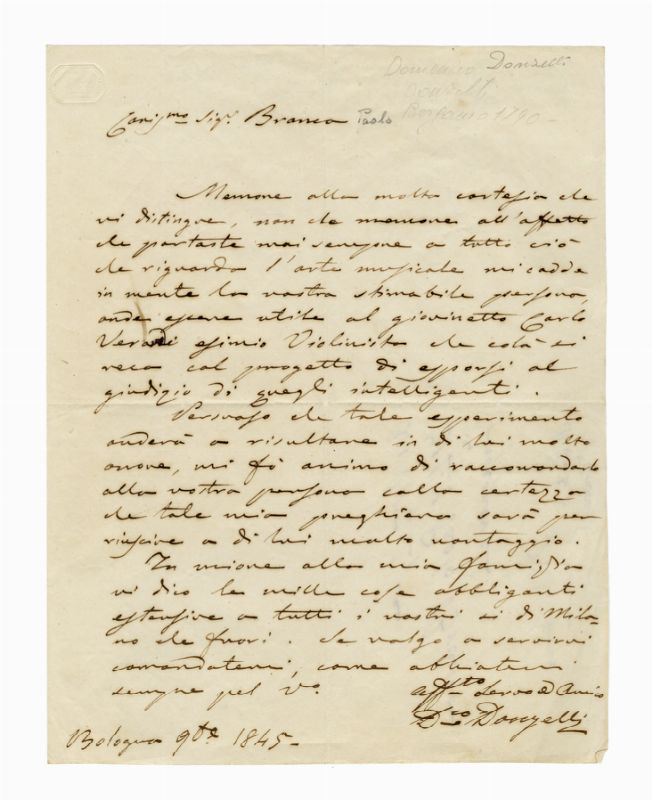 Domenico Donzelli
Donzelli
Bergamo 1790 -
Carismo Sigr. Branca Paolo
Memore alla molta cortesia che
vi distingue, non che memore all'affetto
che portaste mai sempre a tutto ciò
che riguarda l'arte musicale mi cadde
in mente la vostra stimabile persona,
onde essere utile al giovinetto Carlo
Verardi esimio Violinista che costà si
reca col progetto di esporsi al
giudizio di quegli intelligenti.
Persuaso che tale esperimento
anderà a risultare in di lui molto
onore, mi fò animo di raccomandarlo
alla vostra persona colla certezza
che tale mia preghiera sarà per
riuscire a di lui molto vantaggio.
In unione alla mia famiglia
vi dico le mille cose obbliganti
estensive a tutti i vostri sì di Mila-
no che fuori. Se valgo a servirvi
comandatemi, come abbiatemi
sempre pel Vo.
affmo Servo ed Amico
Dco Donzelli
Bologna 9be 1845-